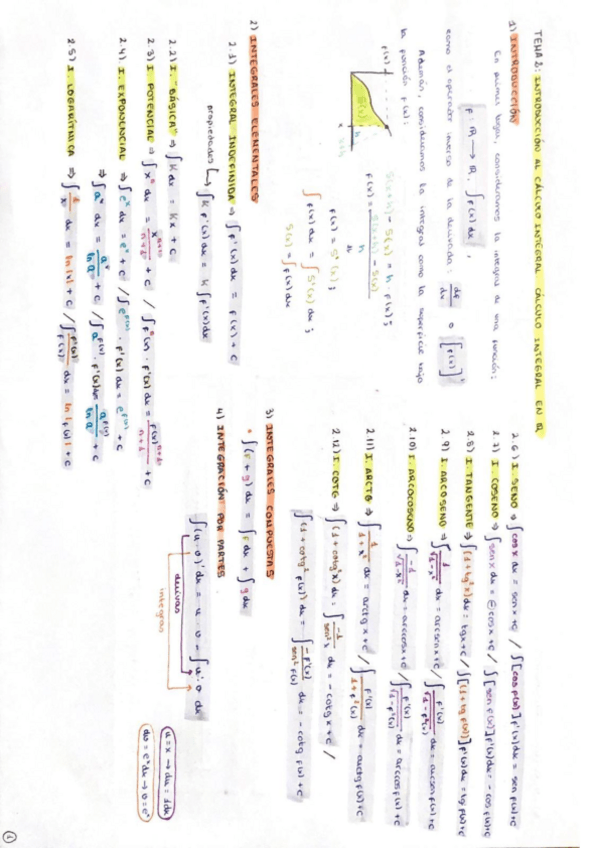 TEMA 2: INTRODUCCIÓN AL CÁLCULO INTEGRAL CÁLCULO INTEGRAL EN ℝ
1) INTRODUCCIÓN
En primer lugar, consideramos la integral de una función:
f: ℝ → ℝ, ∫ f(x) dx,
como el operador inverso de la derivada: df/dx o [f(x)]'
Además, consideramos la integral como la superficie bajo
la función f(x):
f(x)
S(x)
h
x+h
S(x+h) - S(x) = h f(x);
f(x) = S(x+h) - S(x) / h
f(x) = S'(x);
∫ f(x) dx = ∫ S'(x) dx;
S(x) = ∫ f(x) dx
2) INTEGRALES ELEMENTALES
2.1) INTEGRAL INDEFINIDA ⇒ ∫ f'(x) dx = f(x) + c
propiedades ↳ ∫ K f'(x) dx = K ∫ f'(x) dx
2.2) I. "BÁSICA" ⇒ ∫ K dx = Kx + c
2.3) I POTENCIAL ⇒ ∫ xⁿ dx = xⁿ⁺¹/n+1 + c / ∫ fⁿ(x) · f'(x) dx = f(x)ⁿ⁺¹/n+1 + c
2.4) I. EXPONENCIAL ⇒ ∫ eˣ dx = eˣ + c / ∫ e^f(x) · f'(x) dx = e^f(x) + c
⇒ ∫ aˣ dx = aˣ/ln a + c / ∫ a^f(x) · f'(x) dx = a^f(x)/ln a + c
2.5) I. LOGARÍTMICA ⇒ ∫ 1/x dx = ln |x| + c / ∫ f'(x)/f(x) dx = ln |f(x)| + c
2.6) I SENO ⇒ ∫ cos x dx = sen x + c / ∫ [cos f(x)] f'(x) dx = sen f(x) + c
2.7) I COSENO ⇒ ∫ sen x dx = -cos x + c / ∫ [sen f(x)] f'(x) dx = -cos f(x) + c
2.8) I TANGENTE ⇒ ∫ (1 + tg²x) dx = tg x + c / ∫ [1 + tg f(x)] f'(x) dx = tg f(x) + c
2.9) I. ARCOSENO ⇒ ∫ 1/√1-x² dx = arcsen x + c / ∫ f'(x)/√1-f²(x) dx = arcsen f(x) + c
2.10) I. ARCOCOSENO ⇒ ∫ -1/√1-x² dx = arccos x + c / ∫ f'(x)/√1-f²(x) dx = arccos f(x) + c
2.11) I. ARCTG ⇒ ∫ 1/1+x² dx = arctg x + c / ∫ f'(x)/1+f²(x) dx = arctg f(x) + c
2.12) I. COTG ⇒ ∫ (1 + cotg²x) dx = ∫ -1/sen²x dx = -cotg x + c /
∫ (1 + cotg² f(x)) dx = ∫ -f'(x)/sen² f(x) dx = -cotg f(x) + c
3) INTEGRALES COMPUESTAS
* ∫ (f + g) dx = ∫ f dx + ∫ g dx
4) INTEGRACIÓN POR PARTES
∫ (u · v)' dx = u · v - ∫ u' · v dx
derivas
integras
u = x → du = 1dx
dv = eˣ dx → v = eˣ
1